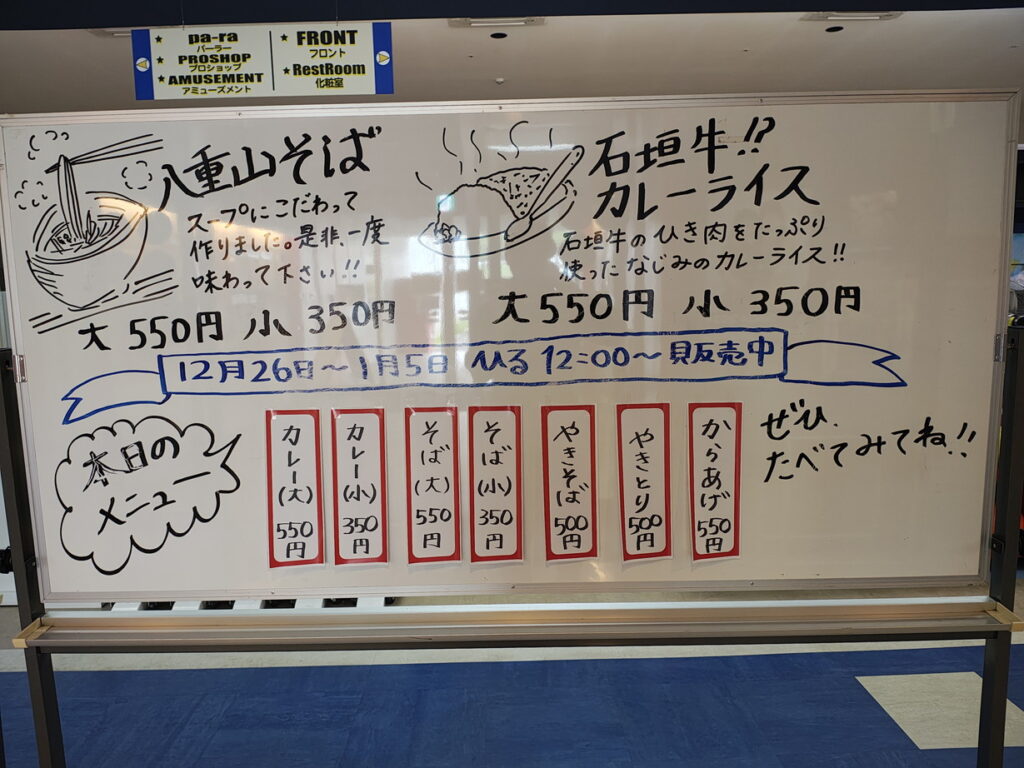 ★ pa-ra
パーラー
★ PROSHOP
プロショップ
★ AMUSEMENT
アミューズメント
★ FRONT
フロント
★ RestRoom
化粧室
八重山そば
スープにこだわって
作りました。是非、一度
味わって下さい!!
大 550円 小 350円
石垣牛!?
カレーライス
石垣牛のひき肉をたっぷり
使ったなじみのカレーライス!!
大 550円 小 350円
12月26日～1月5日 ひる 12:00～ 販売中
本日の
メニュー
カレー(大) 550円
カレー(小) 350円
そば(大) 550円
そば(小) 350円
やきそば 500円
やきとり 500円
からあげ 550円
ぜひ、
たべてみてね!!